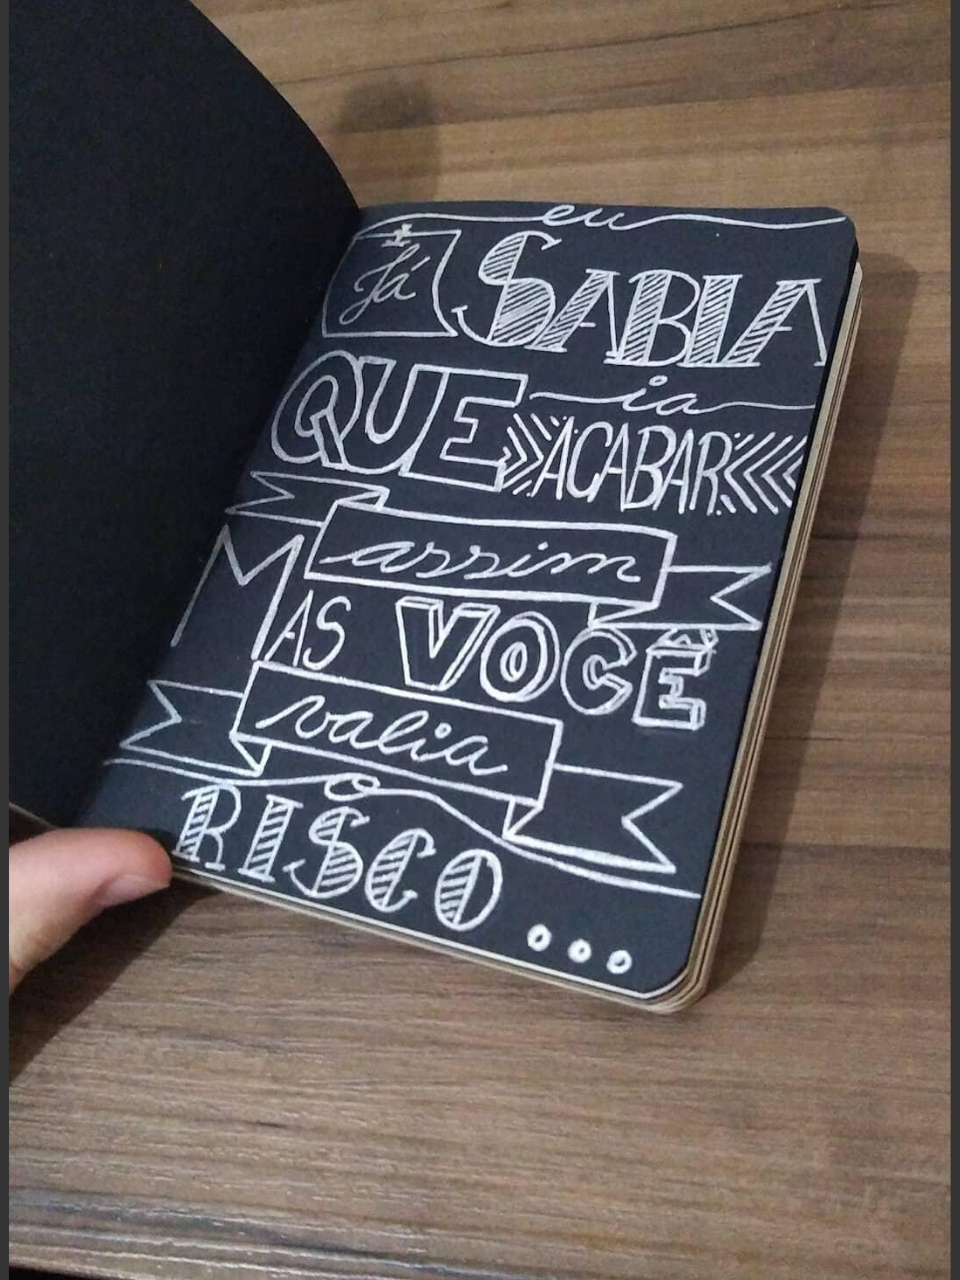 eu
Já SABIA
QUE ia
ACABAR
assim
MAS VOCÊ
valia
o
RISCO...